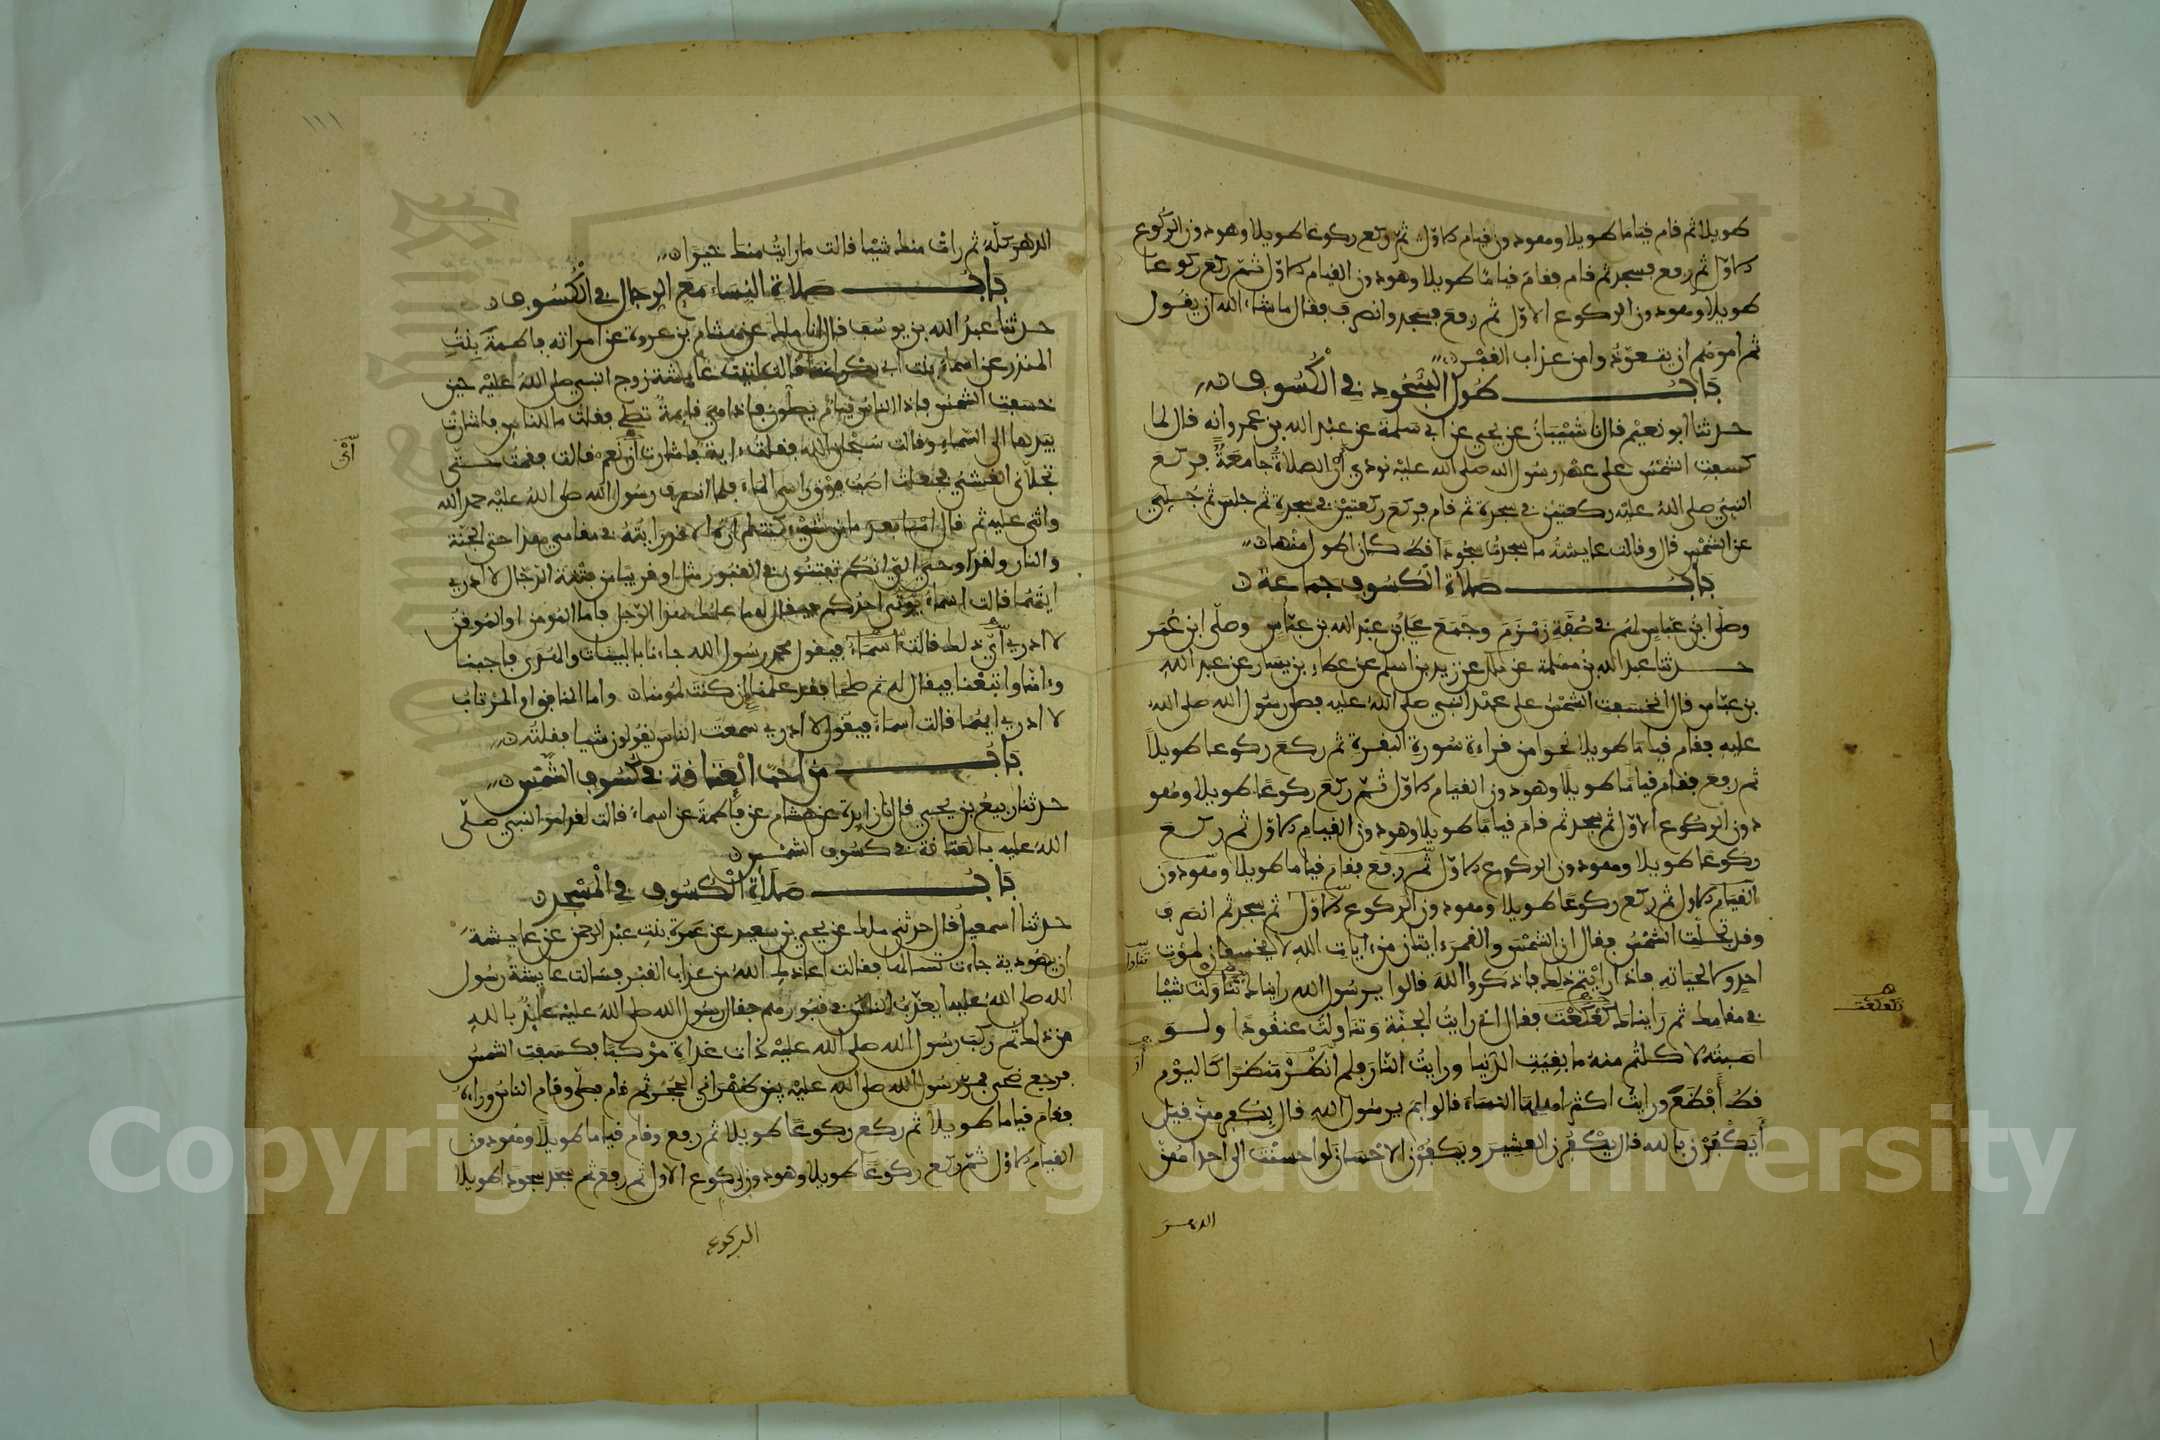 طويلا ثم قام قياما طويلا وهو دون القيام الاول ثم ركع ركوعا طويلا وهو دون الركوع
الاول ثم رفع فسجد ثم قام فقام قياما طويلا وهو دون القيام الاول ثم ركع ركوعا
طويلا وهو دون الركوع الاول ثم رفع فسجد وانصرف فقال ما شاء الله ان يقول
ثم امرهم ان يتعوذوا من عذاب القبر
باب طول السجود في الكسوف
حدثنا ابو نعيم قال نا شيبان عن يحيى عن ابي سلمة عن عبد الله بن عمرو انه قال لما
كسفت الشمس على عهد رسول الله صلى الله عليه نودي أن الصلاة جامعة فركع
النبي صلى الله عليه ركعتين في سجدة ثم قام فركع ركعتين في سجدة ثم جلس ثم جلي
عن الشمس قال وقالت عايشة ما سجدت سجودا قط كان اطول منها
باب صلاة الكسوف جماعة
وصلى ابن عباس لهم في صفة زمزم وجمع علي بن عبد الله بن عباس وصلى ابن عمر
حدثنا عبد الله بن مسلمة عن ملك عن زيد بن اسلم عن عطاء بن يسار عن عبد الله
بن عباس قال انخسفت الشمس على عهد النبي صلى الله عليه فصلى رسول الله صلى الله
عليه فقام قياما طويلا نحوا من قراءة سورة البقرة ثم ركع ركوعا طويلا
ثم رفع فقام قياما طويلا وهو دون القيام الاول ثم ركع ركوعا طويلا وهو
دون الركوع الاول ثم سجد ثم قام قياما طويلا وهو دون القيام الاول ثم ركع
ركوعا طويلا وهو دون الركوع الاول ثم رفع فقام قياما طويلا وهو دون
القيام الاول ثم ركع ركوعا طويلا وهو دون الركوع الاول ثم سجد ثم انصرف
وقد تجلت الشمس فقال ان الشمس والقمر ايتان من ايات الله لا يخسفان لموت
احد ولا لحياته فاذا رايتم ذلك فاذكروا الله قالوا يرسول الله رايناك تناولت شيا
في مقامك ثم رايناك كعكعت فقال اني رايت الجنة وتناولت عنقودا ولو
اصبته لاكلتم منه ما بقيت الدنيا ورايت النار فلم انظر منظرا كاليوم
قط أفظع ورايت اكثر اهلها النساء قالوا بم يرسول الله قال بكفرهن قيل
أيكفرن بالله قال يكفرن العشير ويكفرن الاحسان لو احسنت الى احداهن
الدهر
تكعكعت
الدهر كله ثم رات منك شيا قالت ما رايت منك خيرا
باب صلاة النساء مع الرجال في الكسوف
حدثنا عبد الله بن يوسف قال انا ملك عن هشام بن عروة عن امراته فاطمة بنت
المنذر عن اسماء بنت ابي بكر انها قالت اتيت عايشة زوج النبي صلى الله عليه حين
خسفت الشمس فاذا الناس قيام يصلون فاذا هي قايمة تصلي فقلت ما للناس فاشارت
بيدها الى السماء وقالت سبحان الله فقلت اية فاشارت أن نعم قالت فقمت حتى
تجلاني الغشي فجعلت اصب فوق راسي الماء فلما انصرف رسول الله صلى الله عليه حمد الله
واثنى عليه ثم قال ما من شيء كنت لم اره الا قد رايته في مقامي هذا حتى الجنة
والنار ولقد اوحي الي انكم تفتنون في القبور مثل او قريبا من فتنة الدجال لا ادري
ايتهما قالت اسماء يوتى احدكم فيقال له ما علمك بهذا الرجل فاما المومن او الموقن
لا ادري أي ذلك قالت اسماء فيقول محمد رسول الله جاءنا بالبينات والهدى فاجبنا
وءامنا واتبعنا فيقال له نم صالحا فقد علمنا إن كنت لمومنا واما المنافق او المرتاب
لا ادري ايتهما قالت اسماء فيقول لا ادري سمعت الناس يقولون شيا فقلته
باب من احب العتاقة في كسوف الشمس
حدثنا ربيع بن يحيى قال نا زايدة عن هشام عن فاطمة عن اسماء قالت لقد امر النبي صلى
الله عليه بالعتاقة في كسوف الشمس
باب صلاة الكسوف في المسجد
حدثنا اسمعيل قال حدثني ملك عن يحيى بن سعيد عن عمرة بنت عبد الرحمن عن عايشة
ان يهودية جاءت تسالها فقالت اعاذك الله من عذاب القبر فسالت عايشة رسول
الله صلى الله عليه ايعذب الناس في قبورهم فقال رسول الله صلى الله عليه عايذ بالله
من ذلك ثم ركب رسول الله صلى الله عليه ذات غداة مركبا فكسفت الشمس
فرجع ضحى فمر رسول الله صلى الله عليه بين ظهراني الحجر ثم قام فصلى وقام الناس وراءه
فقام قياما طويلا ثم ركع ركوعا طويلا ثم رفع وقام قياما طويلا وهو دون
القيام الاول ثم ركع ركوعا طويلا وهو دون الركوع الاول ثم رفع ثم سجد سجودا طويلا
الركوع
أي
١١١
Copyright © King Saud University